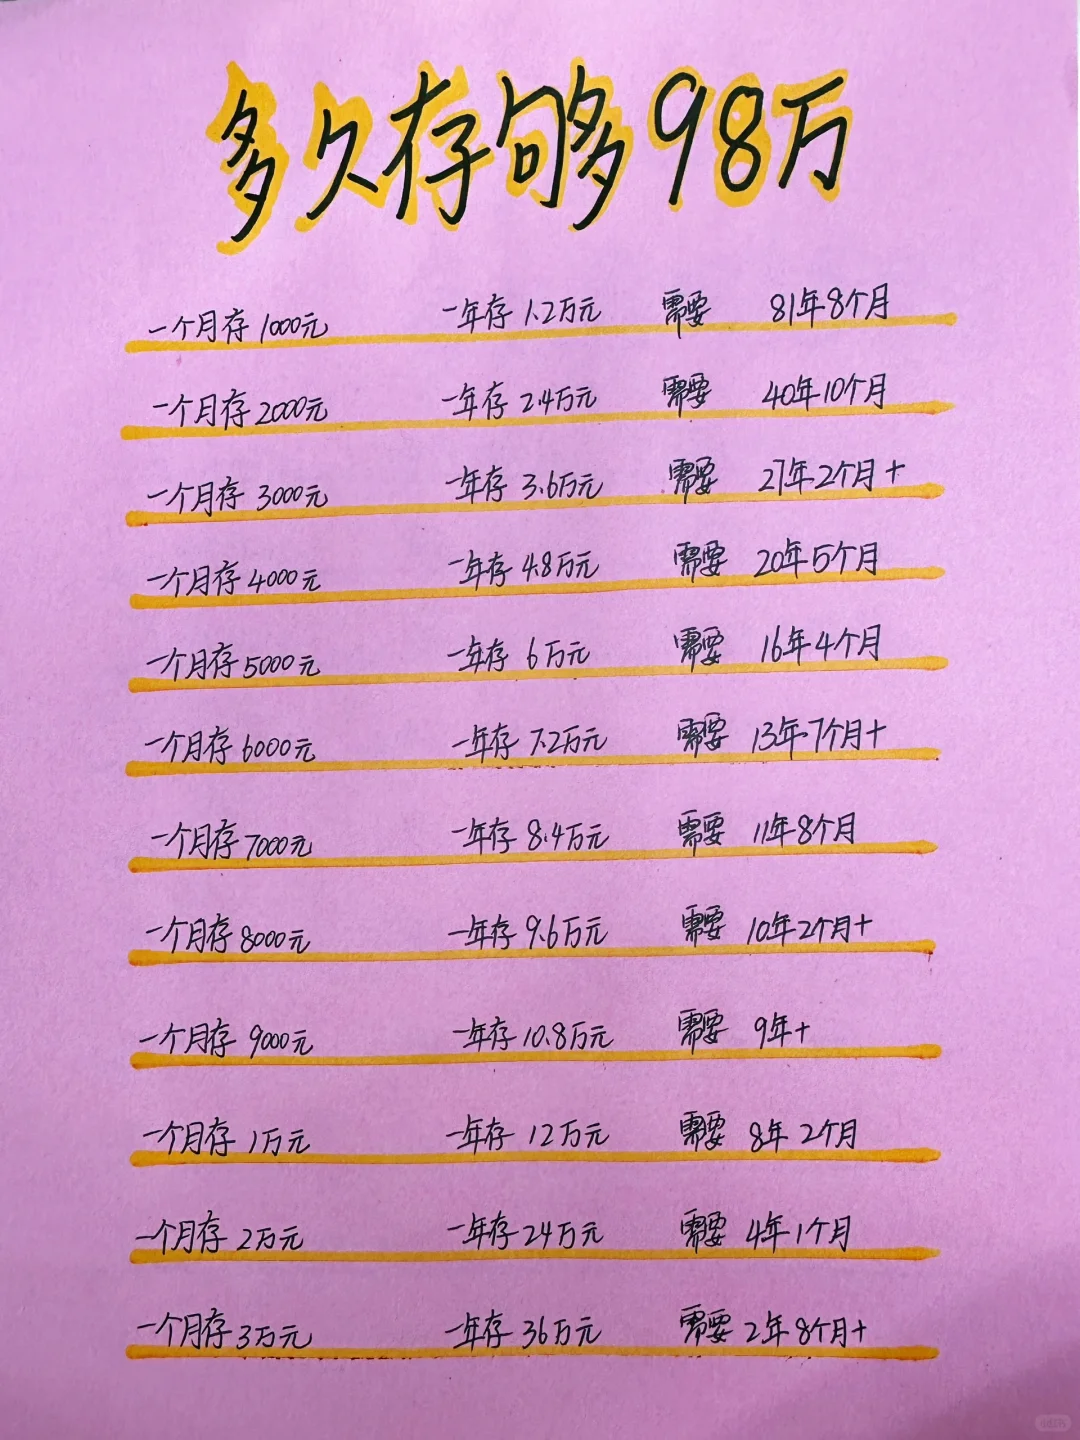 多久存够98万
一个月存1000元 一年存1.2万元 需要 81年8个月
一个月存2000元 一年存2.4万元 需要 40年10个月
一个月存3000元 一年存3.6万元 需要 27年2个月+
一个月存4000元 一年存4.8万元 需要 20年5个月
一个月存5000元 一年存6万元 需要 16年4个月
一个月存6000元 一年存7.2万元 需要 13年7个月+
一个月存7000元 一年存8.4万元 需要 11年8个月
一个月存8000元 一年存9.6万元 需要 10年2个月+
一个月存9000元 一年存10.8万元 需要 9年+
一个月存1万元 一年存12万元 需要 8年2个月
一个月存2万元 一年存24万元 需要 4年1个月
一个月存3万元 一年存36万元 需要 2年8个月+